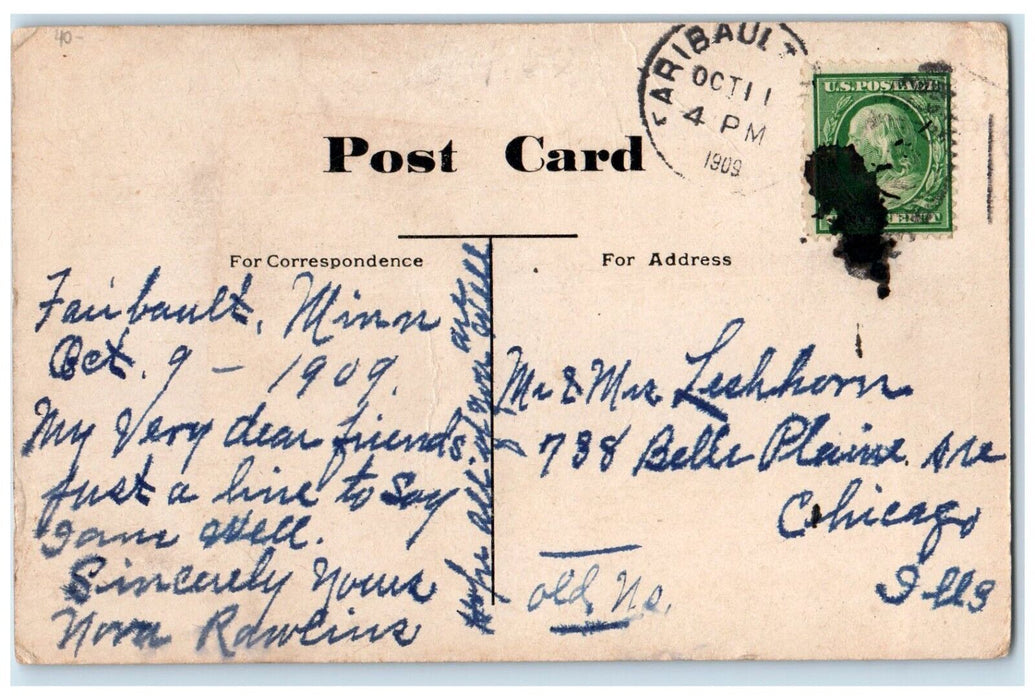 40-
FARIBAULT
OCT 11
4 PM
1909
U.S. POSTAGE
Post Card
For Correspondence
For Address
Faribault, Minn
Oct. 9 - 1909.
My Very dear friends,
Just a line to Say
I am Well.
Sincerely Yours
Nora Rawlins
Hope all of you are Well
Mr & Mrs Leshhorn
738 Belle Plaine Ave
Chicago
Ills
old No.